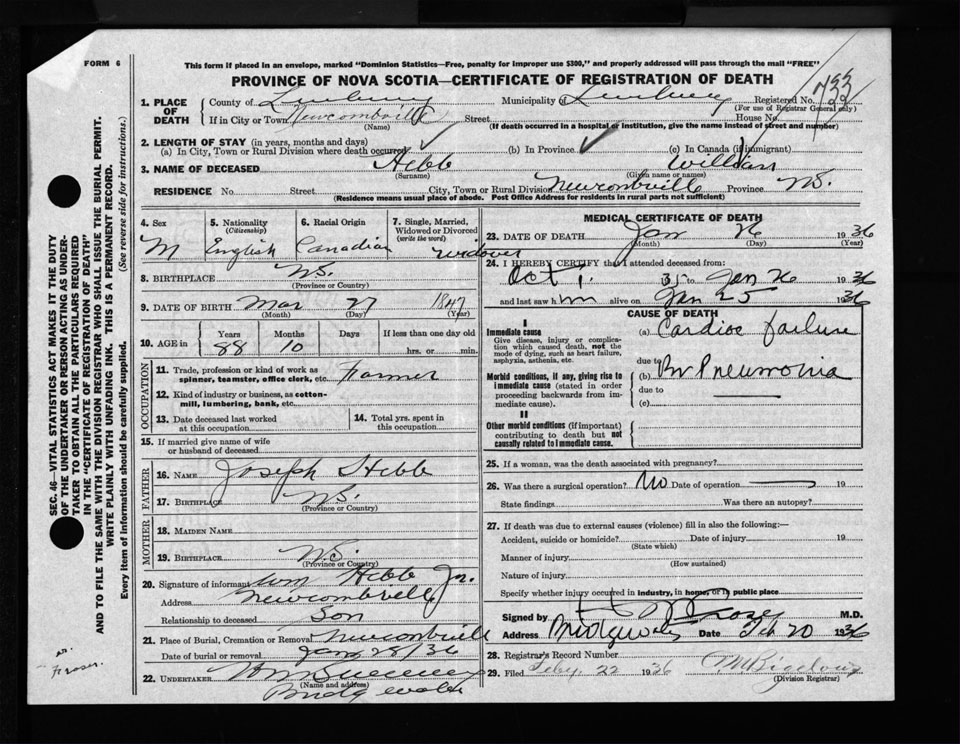 FORM 6
This form if placed in an envelope, marked "Dominion Statistics—Free, penalty for improper use $300," and properly addressed will pass through the mail "FREE"
PROVINCE OF NOVA SCOTIA—CERTIFICATE OF REGISTRATION OF DEATH
SEC. 46—VITAL STATISTICS ACT MAKES IT THE DUTY
OF THE UNDERTAKER OR PERSON ACTING AS UNDER-
TAKER TO OBTAIN ALL THE PARTICULARS REQUIRED
IN THE "CERTIFICATE OF REGISTRATION OF DEATH"
AND TO FILE THE SAME WITH THE DIVISION REGISTRAR WHO SHALL ISSUE THE BURIAL PERMIT.
WRITE PLAINLY WITH UNFADING INK. THIS IS A PERMANENT RECORD.
Every item of information should be carefully supplied. (See reverse side for instructions.)
1. PLACE OF DEATH
County of Lunenburg Municipality of Lunenburg Registered No. 733
(For use of Registrar General only)
If in City or Town Newcombville Street House No.
(Name) (If death occurred in a hospital or institution, give the name instead of street and number)
2. LENGTH OF STAY (in years, months and days)
(a) In City, Town or Rural Division where death occurred ✓ (b) In Province ✓ (c) In Canada (if immigrant)
3. NAME OF DECEASED Hebb William
(Surname) (Given name or names)
RESIDENCE No. Street City, Town or Rural Division Newcombville Province N.S.
(Residence means usual place of abode. Post Office Address for residents in rural parts not sufficient)
4. Sex M
5. Nationality (Citizenship) English
6. Racial Origin Canadian
7. Single, Married, Widowed or Divorced (write the word) Widower
8. BIRTHPLACE N.S.
(Province or Country)
9. DATE OF BIRTH Mar 27 1847
(Month) (Day) (Year)
10. AGE in Years 88 Months 10 Days If less than one day old hrs. or min.
OCCUPATION
11. Trade, profession or kind of work as spinner, teamster, office clerk, etc. Farmer
12. Kind of industry or business, as cotton-mill, lumbering, bank, etc.
13. Date deceased last worked at this occupation
14. Total yrs. spent in this occupation
15. If married give name of wife or husband of deceased
FATHER
16. NAME Joseph Hebb
17. BIRTHPLACE N.S.
(Province or Country)
MOTHER
18. MAIDEN NAME
19. BIRTHPLACE N.S.
(Province or Country)
20. Signature of informant Wm Hebb Jr.
Address Newcombville
Relationship to deceased Son
21. Place of Burial, Cremation or Removal Newcombville
Date of burial or removal Jan 28/36
22. UNDERTAKER
(Name and address)
Bridgewater
MEDICAL CERTIFICATE OF DEATH
23. DATE OF DEATH Jan 26 1936
(Month) (Day) (Year)
24. I HEREBY CERTIFY that I attended deceased from:
Oct 1. 35 to Jan 26 1936
and last saw him alive on Jan 25 1936
CAUSE OF DEATH
I
Immediate cause (a) Cardiac failure
Give disease, injury or complication which caused death, not the mode of dying, such as heart failure, asphyxia, asthenia, etc.
due to
Morbid conditions, if any, giving rise to immediate cause (stated in order proceeding backwards from immediate cause). (b) Br Pneumonia
due to
(c)
II
Other morbid conditions (if important) contributing to death but not causally related to immediate cause.
25. If a woman, was the death associated with pregnancy?
26. Was there a surgical operation? No Date of operation 19
State findings Was there an autopsy?
27. If death was due to external causes (violence) fill in also the following:—
Accident, suicide or homicide? Date of injury 19
(State which)
Manner of injury
(How sustained)
Nature of injury
Specify whether injury occurred in industry, in home, or in public place
Signed by M.D.
Address Bridgewater Date Feb 20 1936
28. Registrar's Record Number
29. Filed Feby. 22 1936
(Division Registrar)
Dr.
Fraser.